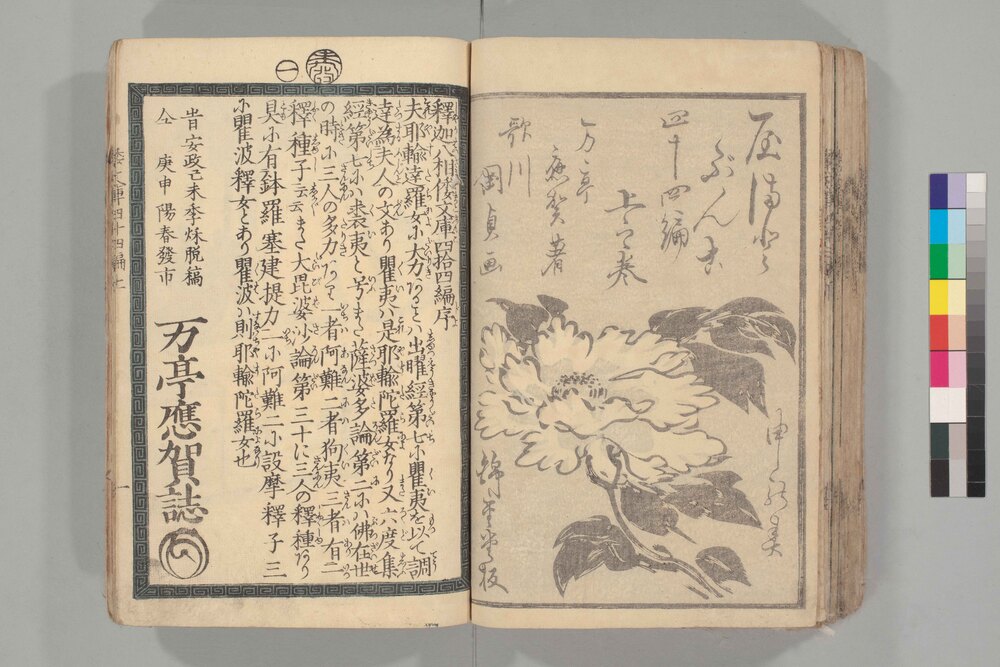 四十四編
上之巻
万亭
應賀著
歌川
國貞画
錦重堂板
釋迦八相倭文庫四拾四編序
夫耶輸達羅女に大力なることハ出曜經第七に瞿夷を以て調
達為夫人の文あり瞿夷ハ是耶輸陀羅女なり又六度集
經第七にハ裘夷と号また薩婆多論第二にハ佛在世
の時に三人の多力なり一者阿難二者狗夷三者有二
釋種子云云また大毘婆沙論第三十に三人の釋種あり
具に有鉢羅塞建提力一に阿難二に設摩釋子三
に瞿波釋女とあり瞿波ハ則耶輸陀羅女也
旹安政己未季秌脱稿
仝 庚申陽春發市
万亭應賀誌
倭文庫四十四編上
一